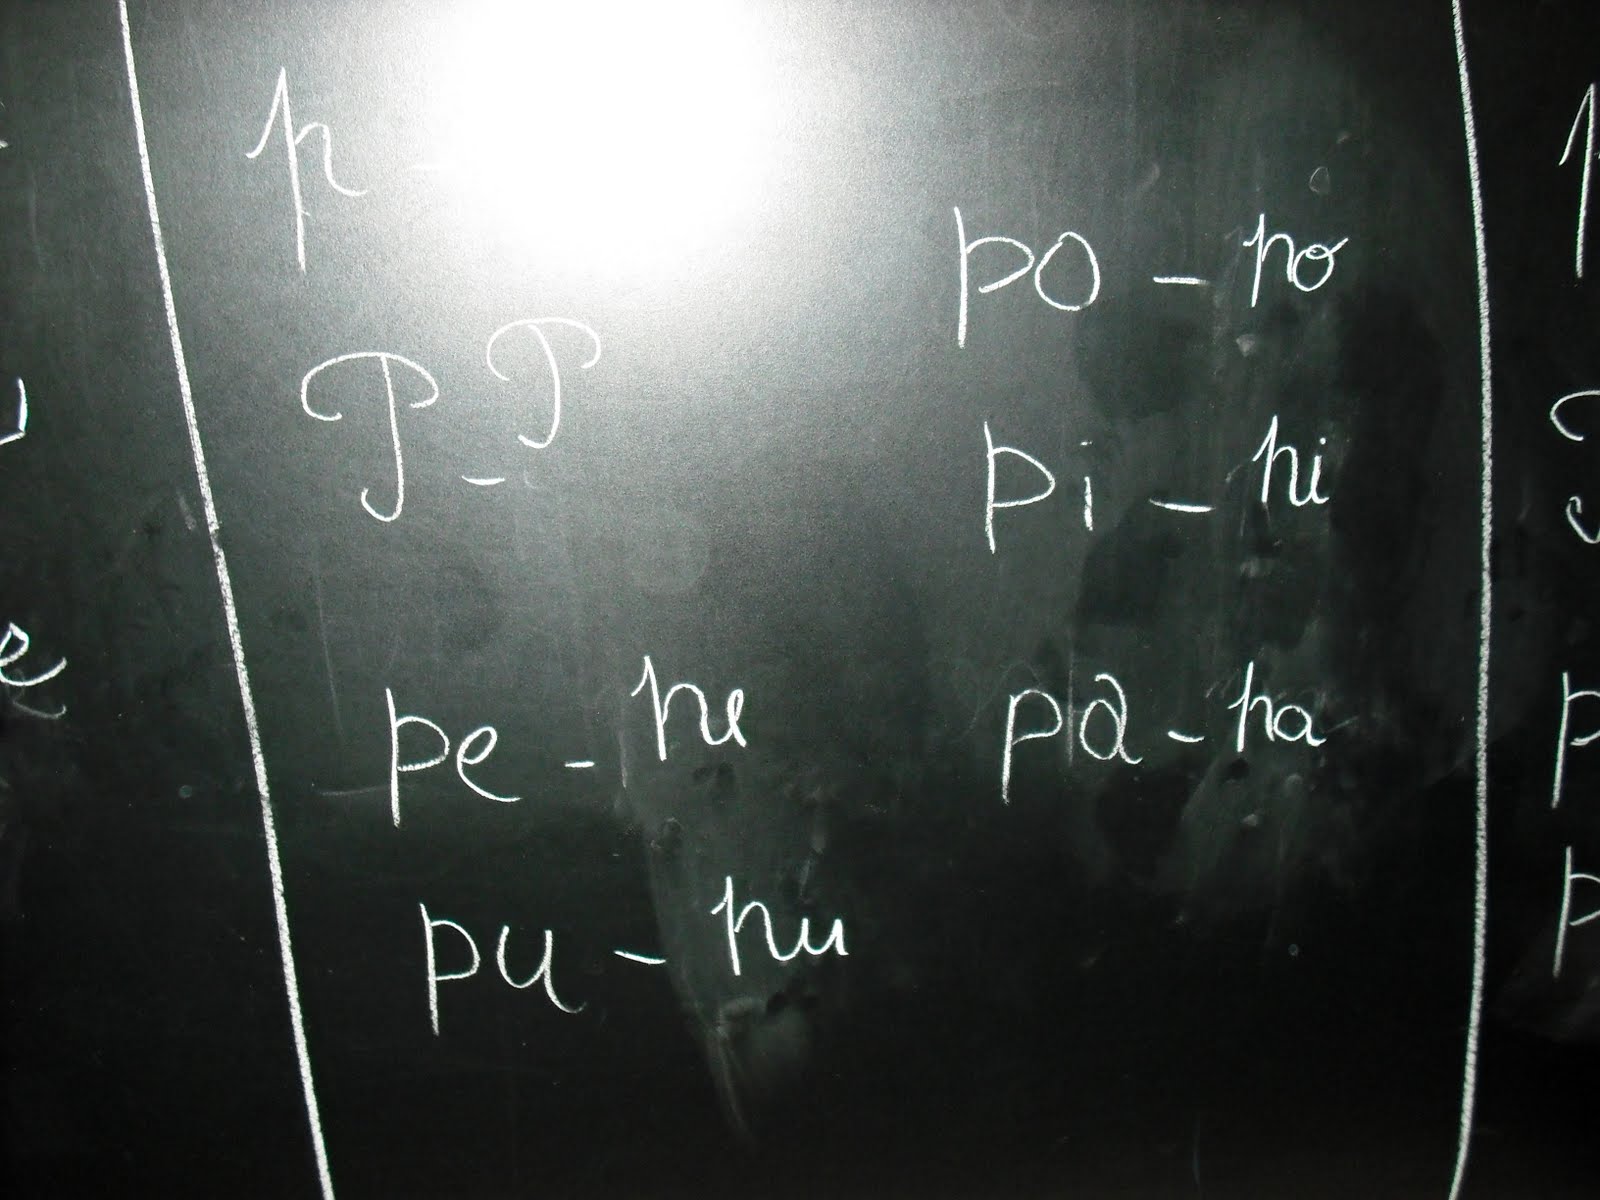 p -
P - P
pe - pe
pu - pu
po - po
pi - pi
pa - pa